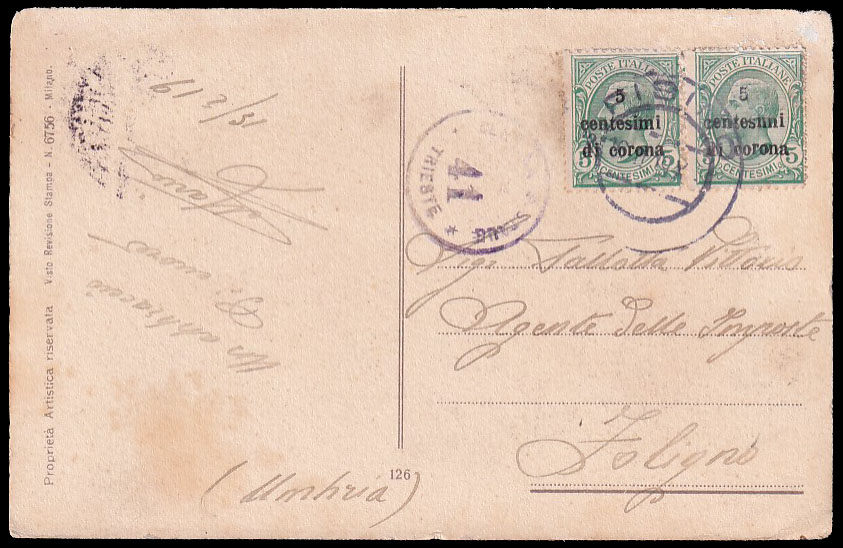 Proprietà Artistica riservata Visto Revisione Stampa - N. 6756 - Milano.
31/3/19
Un abbraccio
Di cuore
126
TRIESTE
41
POSTE ITALIANE
5
centesimi
di corona
5
CENTESIMI
POSTE ITALIANE
5
centesimi
di corona
5
CENTESIMI
Sig. Vittorio
Agente delle Imposte
Foligno
(Umbria)